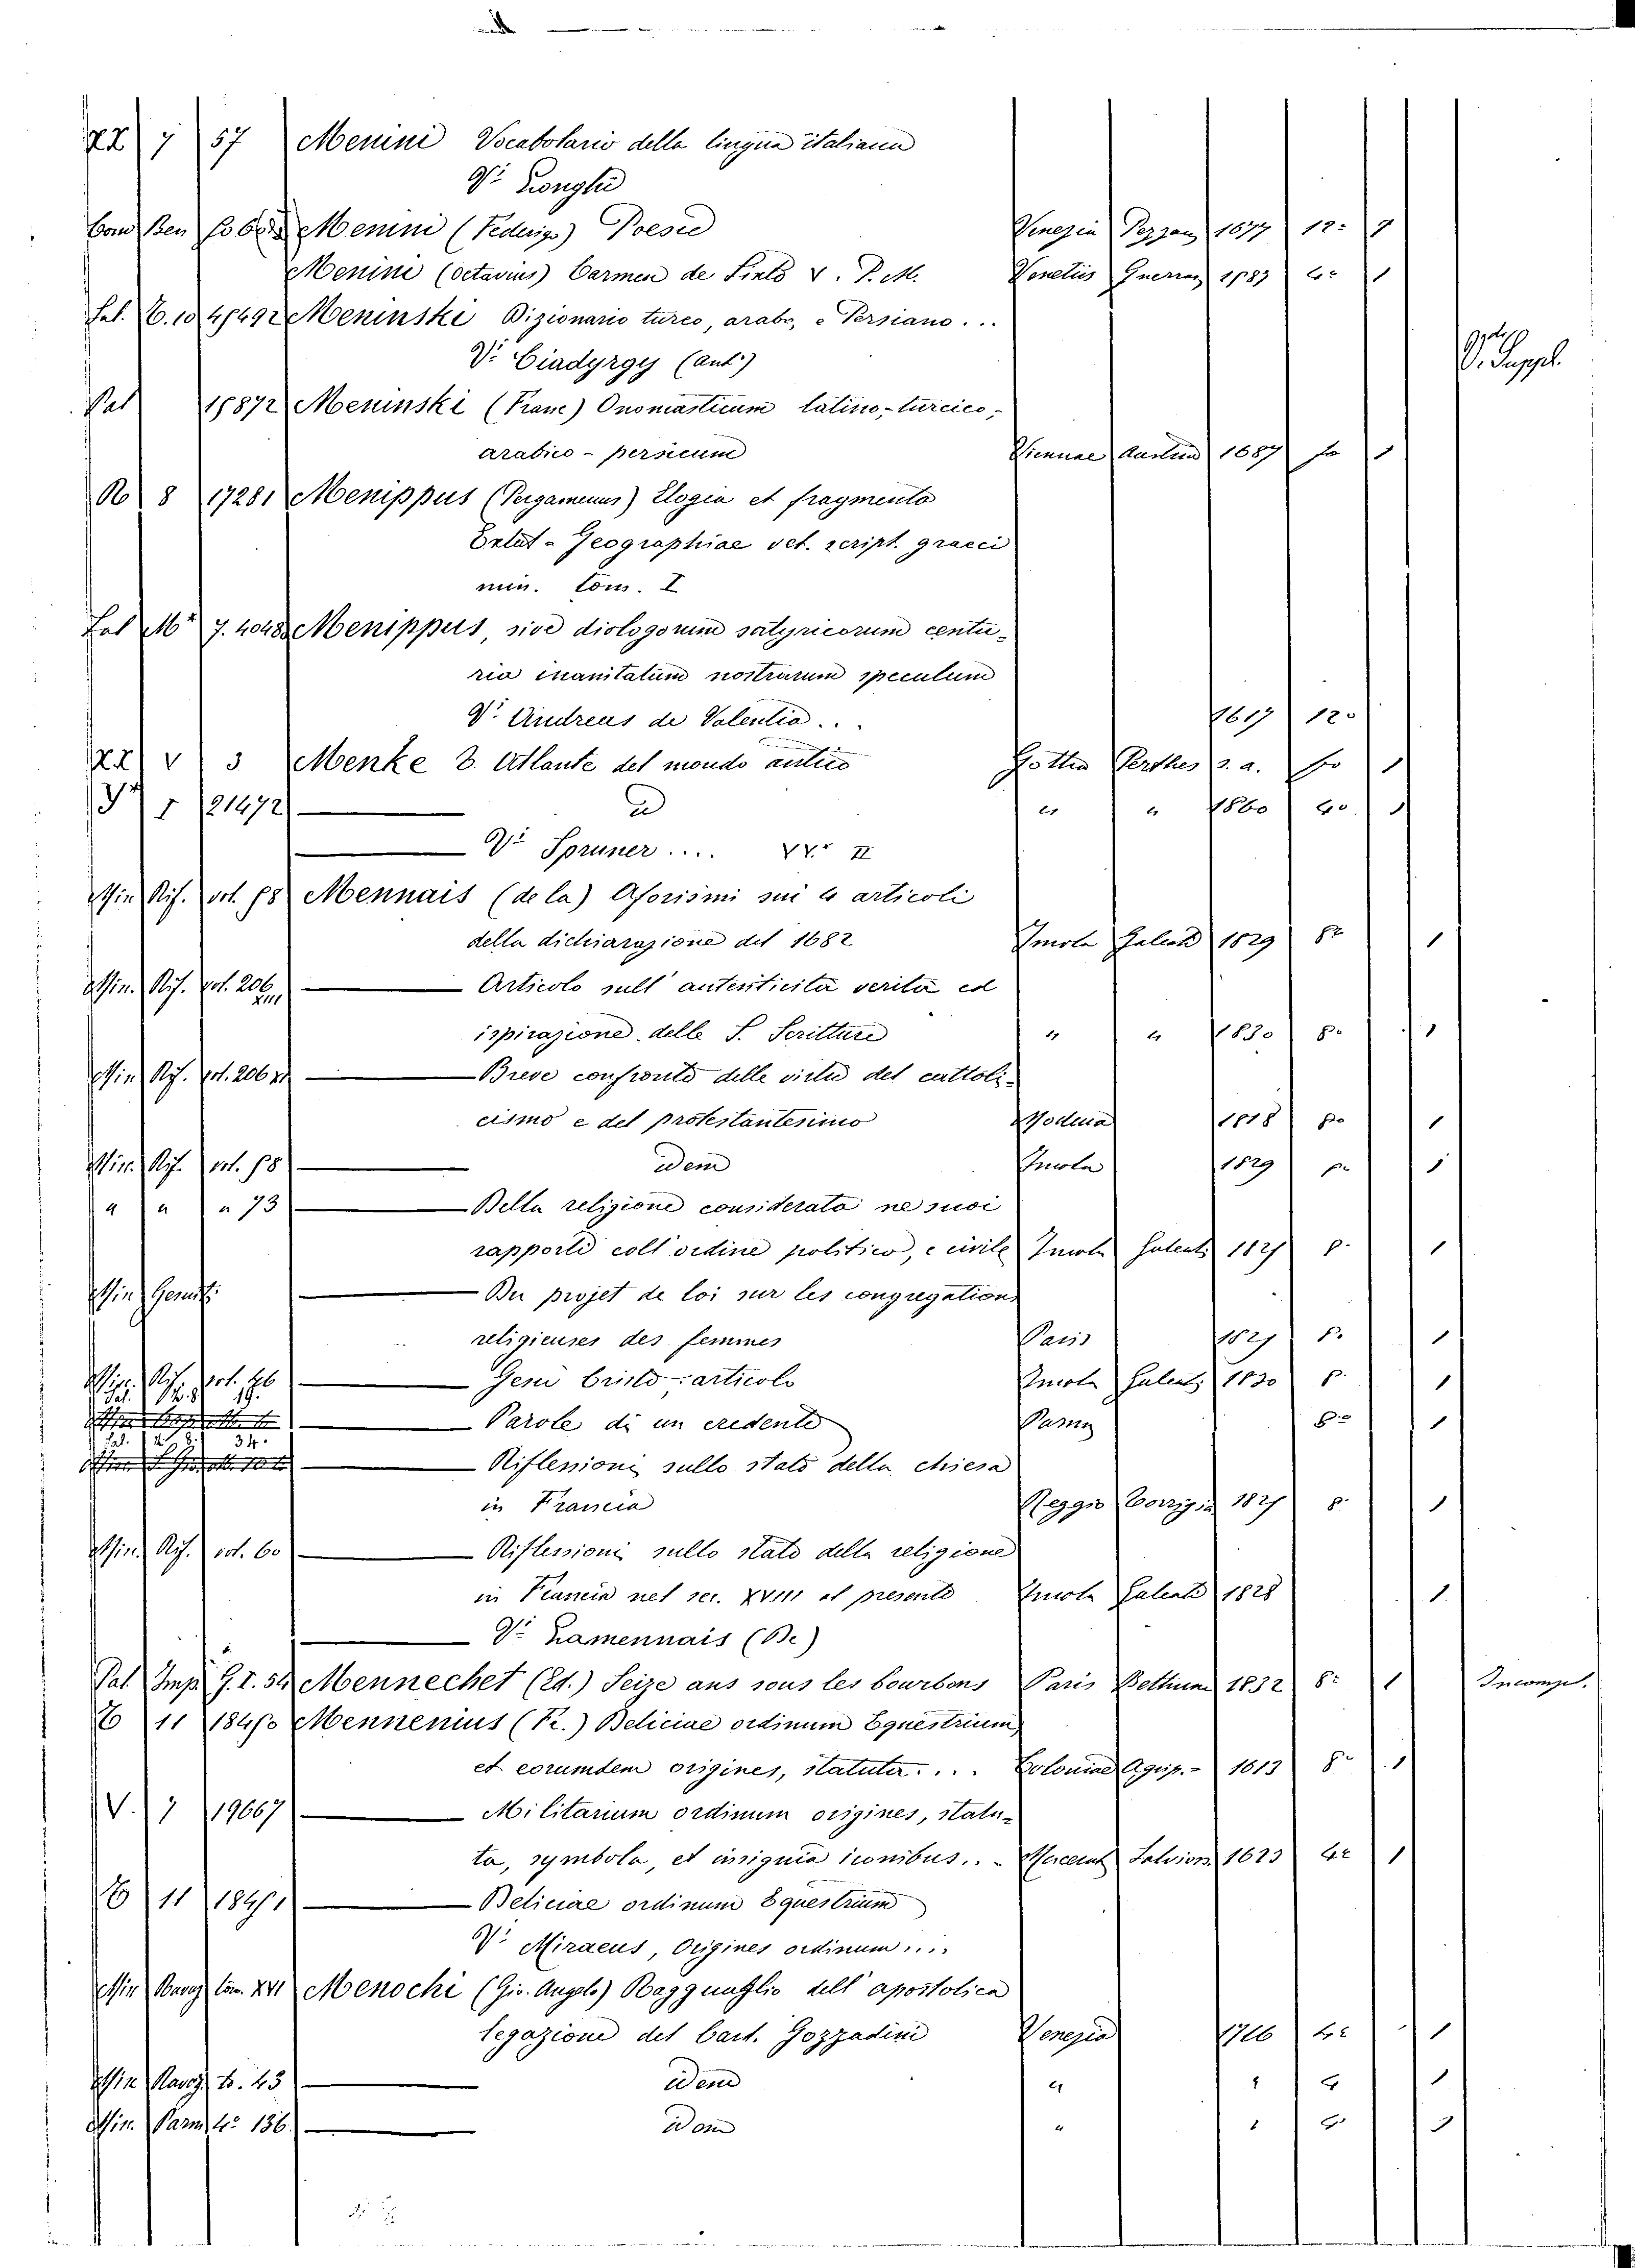 7 57 Menini Vocabolario della lingua italiana
V. Longhi
Menini (Federigo) Poesie Venezia Pezzan 1677 12° 1
Menini (Octavius) Carmen de Sixto V. P. M. Venetiis Guerra 1583 4° 1
Meninski Dizionario turco, arabo, e Persiano...
V. Ciadyrgy (Ant.) V. Suppl.
Pal 15872 Meninski (Franc) Onomasticum latino-turcico-
arabico-persicum Viennae 1687 fo 1
8 17281 Menippus (Pergamenus) Elogia et fragmenta
Extat-Geographiae vet. script. graeci
min. tom. I
7. 4048 Menippus, sive dialogorum satyricorum centu-
ria inanitatum nostrarum speculum
V. Andreas de Valentia... 1617 12°
V 3 Menke B. Atlante del mondo antico Gotha Perthes s. a. fo 1
I 21472 — " " 1860 4° 1
— V. Spruner.... VV. II
Min Rif. vol. 58 Mennais (de la) Aforismi sui 4 articoli
della dichiarazione del 1682 Imola Galeati 1829 8° 1
Min. Rif. vol. 206 XIII — Articolo sull' autenticità verità ed
ispirazione delle S. Scritture " " 1830 8° 1
Min Rif. vol. 206 — Breve confronto delle virtù del cattoli-
cismo e del protestantesimo Modena 1818 8° 1
Min. Rif. vol. 58 — idem Imola 1829 8° 1
" " " 73 — Della religione considerata ne suoi
rapporti coll' ordine politico, e civile Imola Galeati 1827 8° 1
Min — Du projet de loi sur les congregations
religieuses des femmes Paris 8° 1
Min. Rif. vol. — Geni Cristo articolo Imola Galeati 1830 8° 1
19. — Parole di un credente Parma 8° 1
34. — Riflessioni sullo stato della chiesa
in Francia Reggio 1827 8° 1
Min. Rif. vol. 60 — Riflessioni sullo stato della religione
in Francia nel sec. XVIII al presente Imola Galeati 1828 1
— V. Lamennais (De)
Pal Imp. G. I. 54 Mennechet (Ed.) Seize ans sous les bourbons Paris Bethune 1832 8° 1 Incompl.
11 Mennenius (F.) Deliciae ordinum Equestrium
et eorumdem origines, statuta.... Coloniae Agrip.- 1613 8° 1
V. 7 19667 — Militarium ordinum origines, statu-
ta, symbola, et insignia iconibus... Macerat Salvion 1623 4° 1
11 — Deliciae ordinum Equestrium
V. Miraeus, Origines ordinum....
Min Ravag tom. XVI Menochi (Gio. Angelo) Ragguaglio dell' apostolica
legazione del Card. Gozzadini Venezia 4° 1
Min Ravag t. 43 — idem " " 1
Min. Parm 4° 136. — idem " "